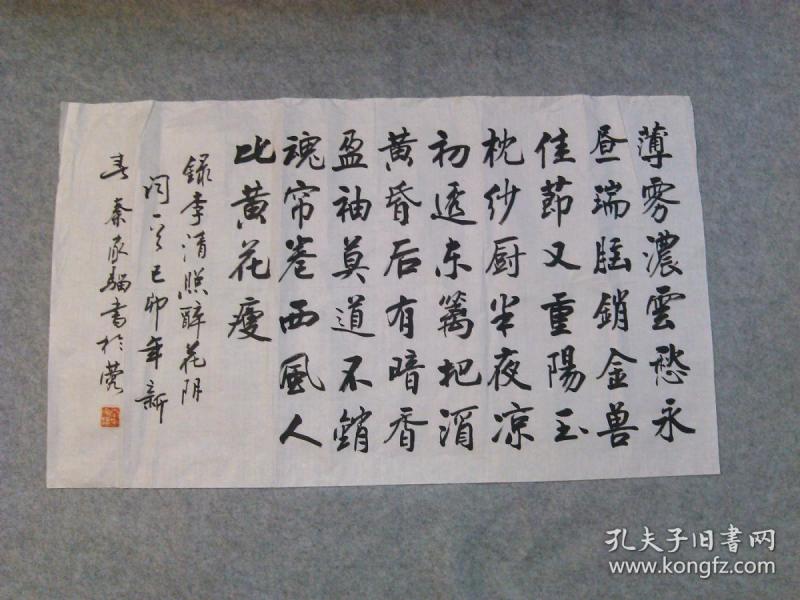 薄雾濃雲愁永
昼瑞脑銷金兽
佳節又重陽玉
枕纱厨半夜凉
初透东篱把酒
黄昏后有暗香
盈袖莫道不銷
魂帘卷西風人
比黄花瘦
録李清照醉花阴
词一首己卯年新
春秦家骝书於莞
孔夫子旧书网
www.kongfz.com